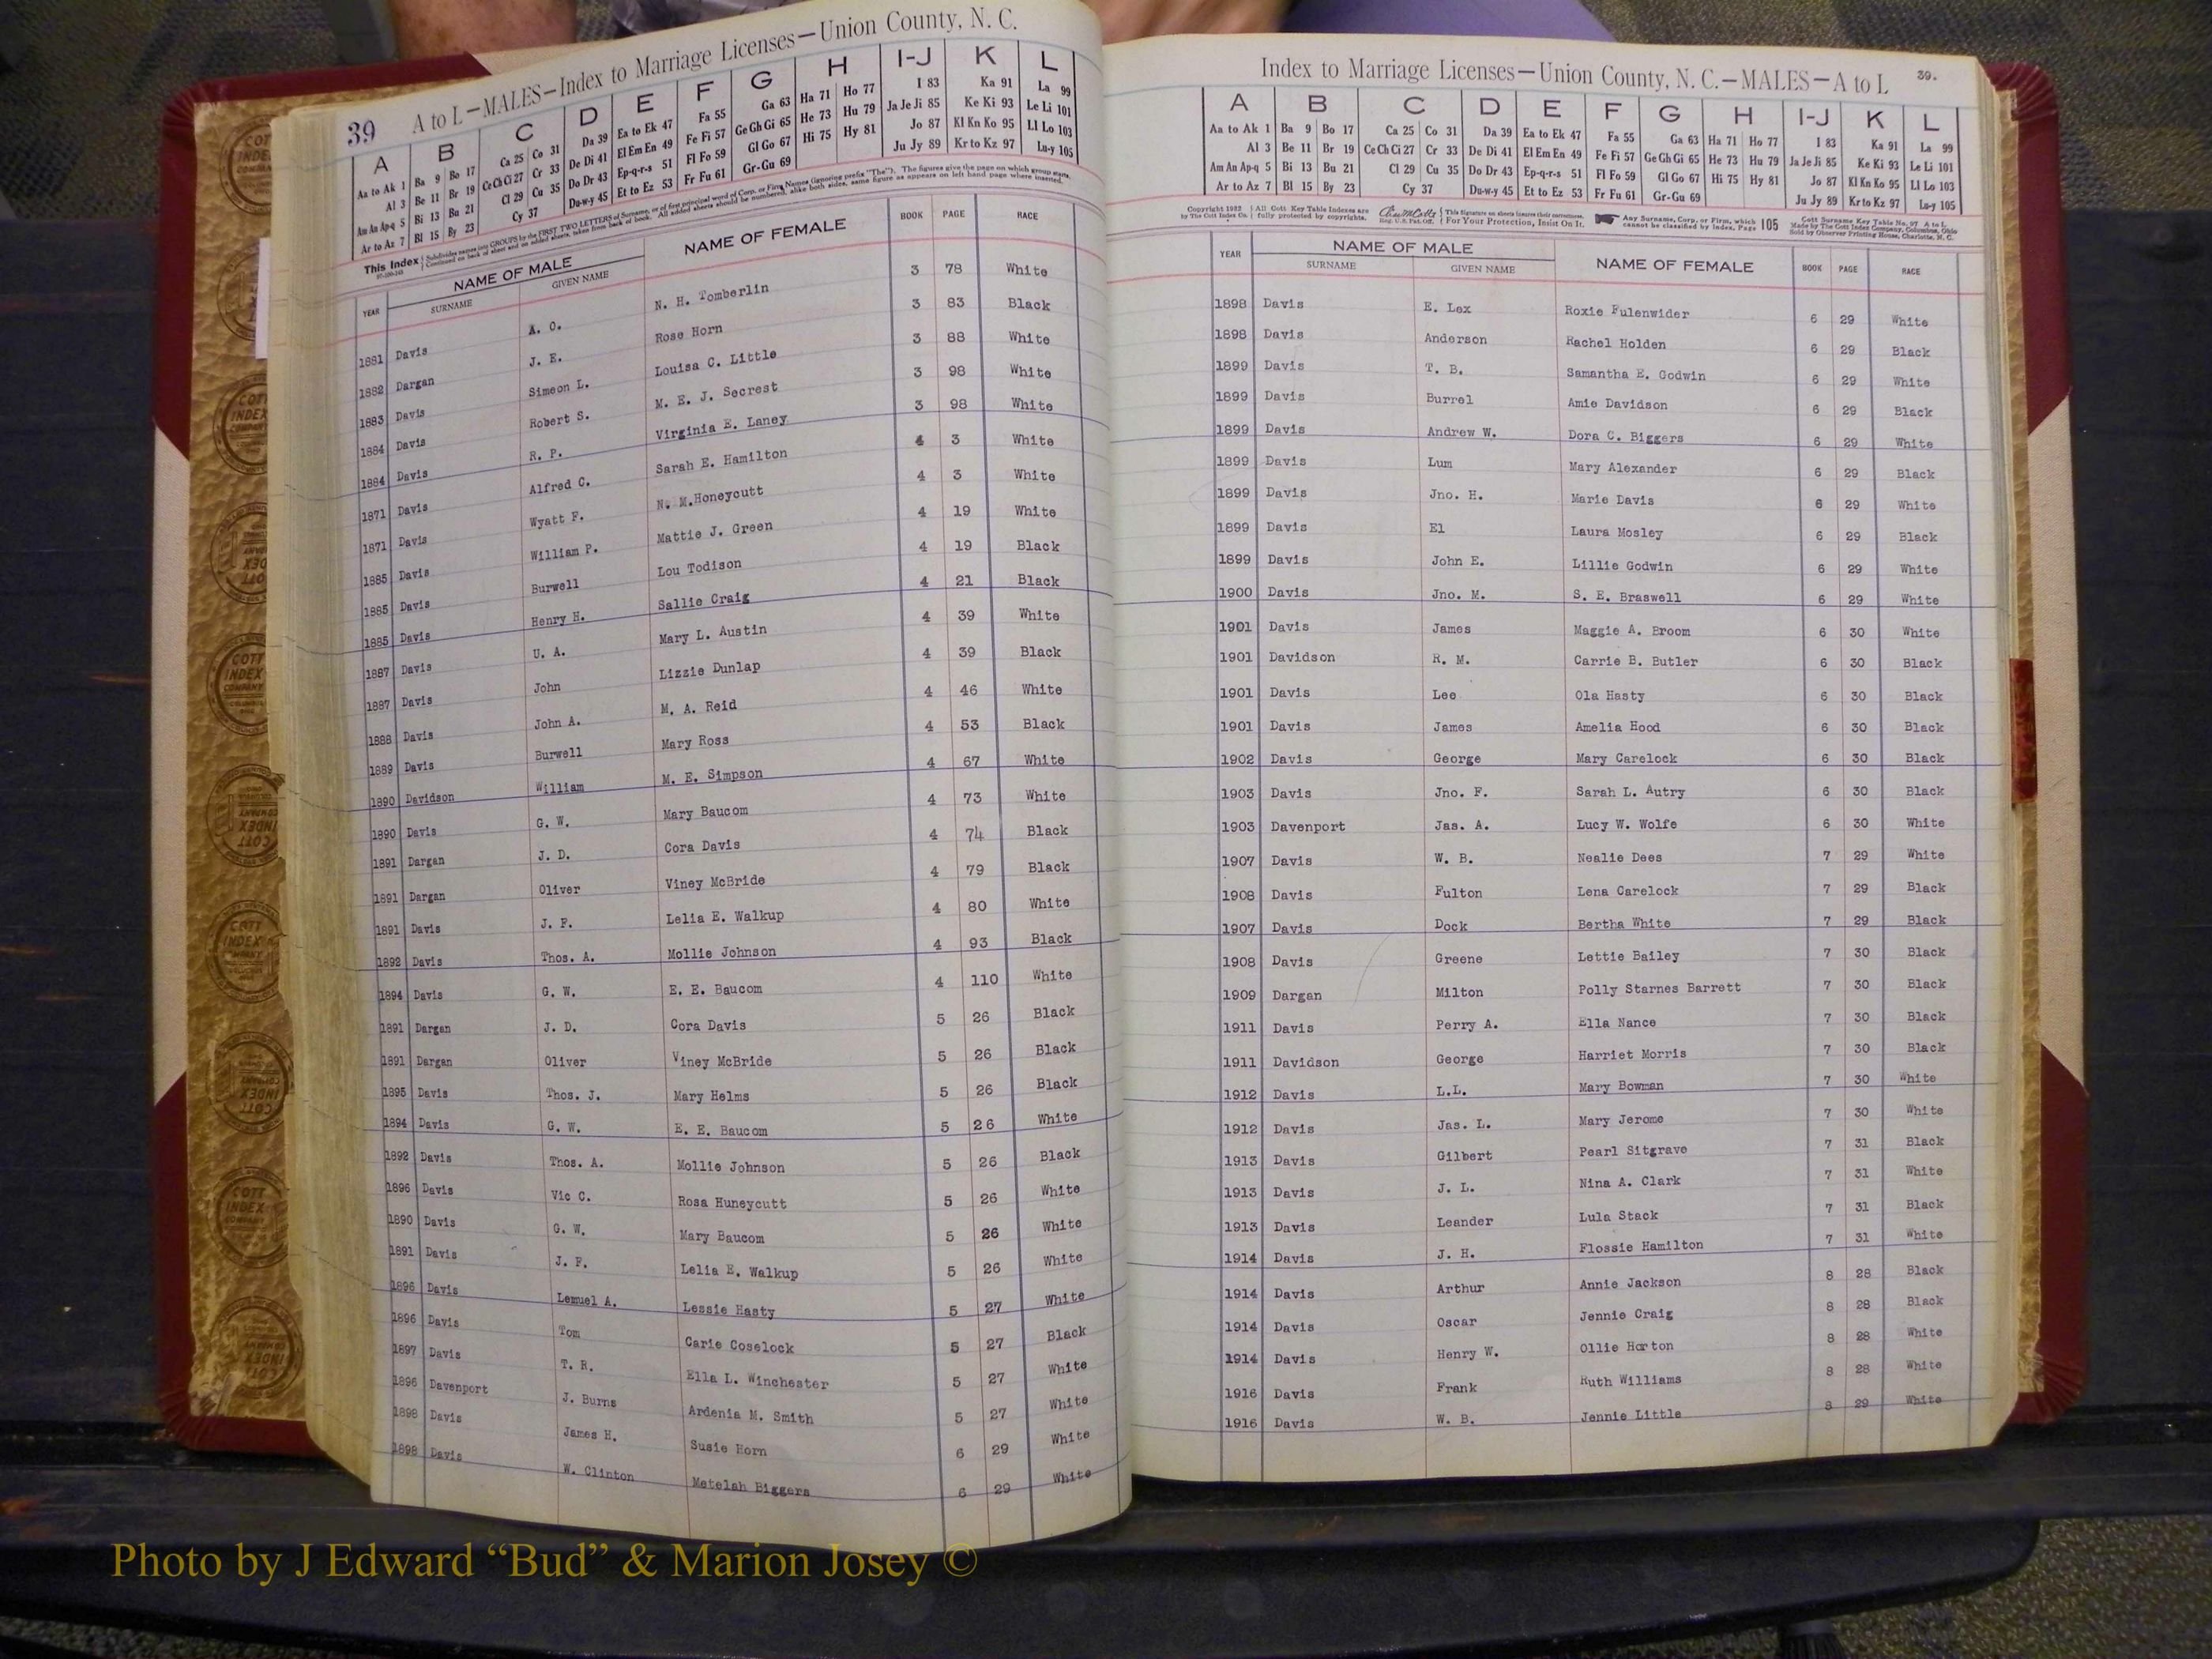 39
A to L—MALES—Index to Marriage Licenses—Union County, N. C.
A B C D E F G H I-J K L
Aa to Ak 1 Ba 9 Bo 17 Ca 25 Co 31 Da 39 Ea to Ek 47 Fa 55 Ga 63 Ha 71 Ho 77 I 83 Ka 91 La 99
Al 3 Be 11 Br 19 Ce Ch Ci 27 Cr 33 De Di 41 El Em En 49 Fe Fi 57 Ge Gh Gi 65 He 73 Hu 79 Ja Je Ji 85 Ke Ki 93 Le Li 101
Am An Ap-q 5 Bi 13 Bu 21 Cl 29 Cu 35 Do Dr 43 Ep-q-r-s 51 Fl Fo 59 Gl Go 67 Hi 75 Hy 81 Jo 87 Kl Kn Ko 95 Ll Lo 103
Ar to Az 7 Bl 15 By 23 Cy 37 Du-w-y 45 Et to Ez 53 Fr Fu 61 Gr-Gu 69 Ju Jy 89 Kr to Kz 97 Lu-y 105
YEAR NAME OF MALE SURNAME GIVEN NAME NAME OF FEMALE BOOK PAGE RACE
1881 Davis A. O. N. H. Tomberlin 3 78 White
1882 Dargan J. E. Rose Horn 3 83 Black
1883 Davis Simeon L. Louisa C. Little 3 88 White
1884 Davis Robert S. M. E. J. Secrest 3 98 White
1884 Davis R. P. Virginia E. Laney 3 98 White
1871 Davis Alfred C. Sarah E. Hamilton 4 3 White
1871 Davis Wyatt F. N. M.Honeycutt 4 3 White
1885 Davis William P. Mattie J. Green 4 19 White
1885 Davis Burwell Lou Todison 4 19 Black
1885 Davis Henry H. Sallie Craig 4 21 Black
1887 Davis U. A. Mary L. Austin 4 39 White
1887 Davis John Lizzie Dunlap 4 39 Black
1888 Davis John A. M. A. Reid 4 46 White
1889 Davis Burwell Mary Ross 4 53 Black
1890 Davidson William M. E. Simpson 4 67 White
1890 Davis G. W. Mary Baucom 4 73 White
1891 Dargan J. D. Cora Davis 4 74 Black
1891 Dargan Oliver Viney McBride 4 79 Black
1891 Davis J. F. Lelia E. Walkup 4 80 White
1892 Davis Thos. A. Mollie Johnson 4 93 Black
1894 Davis G. W. E. E. Baucom 4 110 White
1891 Dargan J. D. Cora Davis 5 26 Black
1891 Dargan Oliver Viney McBride 5 26 Black
1895 Davis Thos. J. Mary Helms 5 26 Black
1894 Davis G. W. E. E. Baucom 5 26 White
1892 Davis Thos. A. Mollie Johnson 5 26 Black
1896 Davis Vic C. Rosa Huneycutt 5 26 White
1890 Davis G. W. Mary Baucom 5 26 White
1891 Davis J. F. Lelia E. Walkup 5 26 White
1896 Davis Lemuel A. Lessie Hasty 5 27 White
1896 Davis Tom Carie Coselock 5 27 Black
1897 Davis T. R. Ella L. Winchester 5 27 White
1896 Davenport J. Burns Ardenia M. Smith 5 27 White
1898 Davis James H. Susie Horn 6 29 White
1898 Davis W. Clinton Metelah Biggers 6 29 White
Index to Marriage Licenses—Union County, N. C.—MALES—A to L 39.
A B C D E F G H I-J K L
Aa to Ak 1 Ba 9 Bo 17 Ca 25 Co 31 Da 39 Ea to Ek 47 Fa 55 Ga 63 Ha 71 Ho 77 I 83 Ka 91 La 99
Al 3 Be 11 Br 19 Ce Ch Ci 27 Cr 33 De Di 41 El Em En 49 Fe Fi 57 Ge Gh Gi 65 He 73 Hu 79 Ja Je Ji 85 Ke Ki 93 Le Li 101
Am An Ap-q 5 Bi 13 Bu 21 Cl 29 Cu 35 Do Dr 43 Ep-q-r-s 51 Fl Fo 59 Gl Go 67 Hi 75 Hy 81 Jo 87 Kl Kn Ko 95 Ll Lo 103
Ar to Az 7 Bl 15 By 23 Cy 37 Du-w-y 45 Et to Ez 53 Fr Fu 61 Gr-Gu 69 Ju Jy 89 Kr to Kz 97 Lu-y 105
YEAR NAME OF MALE SURNAME GIVEN NAME NAME OF FEMALE BOOK PAGE RACE
1898 Davis E. Lex Roxie Fulenwider 6 29 White
1898 Davis Anderson Rachel Holden 6 29 Black
1899 Davis T. B. Samantha E. Godwin 6 29 White
1899 Davis Burrel Amie Davidson 6 29 Black
1899 Davis Andrew W. Dora C. Biggers 6 29 White
1899 Davis Lum Mary Alexander 6 29 Black
1899 Davis Jno. H. Marie Davis 6 29 White
1899 Davis El Laura Mosley 6 29 Black
1899 Davis John E. Lillie Godwin 6 29 White
1900 Davis Jno. M. S. E. Braswell 6 29 White
1901 Davis James Maggie A. Broom 6 30 White
1901 Davidson R. M. Carrie B. Butler 6 30 Black
1901 Davis Lee Ola Hasty 6 30 Black
1901 Davis James Amelia Hood 6 30 Black
1902 Davis George Mary Carelock 6 30 Black
1903 Davis Jno. F. Sarah L. Autry 6 30 Black
1903 Davenport Jas. A. Lucy W. Wolfe 6 30 White
1907 Davis W. B. Nealie Dees 7 29 White
1908 Davis Fulton Lena Carelock 7 29 Black
1907 Davis Dock Bertha White 7 29 Black
1908 Davis Greene Lettie Bailey 7 30 Black
1909 Dargan Milton Polly Starnes Barrett 7 30 Black
1911 Davis Perry A. Ella Nance 7 30 Black
1911 Davidson George Harriet Morris 7 30 Black
1912 Davis L.L. Mary Bowman 7 30 White
1912 Davis Jas. L. Mary Jerome 7 30 White
1913 Davis Gilbert Pearl Sitgrave 7 31 Black
1913 Davis J. L. Nina A. Clark 7 31 White
1913 Davis Leander Lula Stack 7 31 Black
1914 Davis J. H. Flossie Hamilton 7 31 White
1914 Davis Arthur Annie Jackson 8 28 Black
1914 Davis Oscar Jennie Craig 8 28 Black
1914 Davis Henry W. Ollie Horton 8 28 White
1916 Davis Frank Ruth Williams 8 28 White
1916 Davis W. B. Jennie Little 8 29 White
Photo by J Edward “Bud” & Marion Josey ©